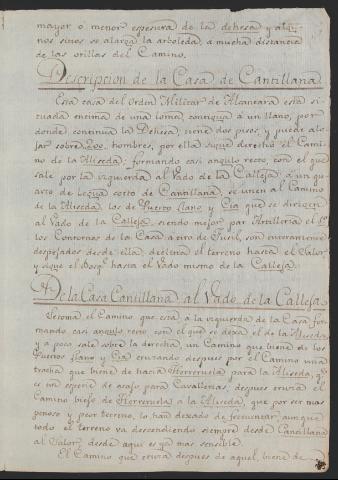 mayor ó menor espesura de la dehesa y algu-
nos sitios se alarga la arboleda, a mucha distancia
de las orillas del Camino.
Descripcion de la Casa de Cantillana
Esta casa del Orden Militar de Alcantara está si-
tuada encima de una loma contigua á un llano, por
donde continua la Dehesa, tiene dos pisos, y puede alo-
jar sobre 200 hombres, por ella sigue derecho el Cami-
no de la Aliseda: formando casi angulo recto, con el que
sale por la izquierda al Vado de la Calleja á un qu-
arto de Legua corto de Cantillana, se unen al Camino
de la Aliseda, los de Puerto llano y Cia que se dirigen
al Vado de la Calleja, siendo mejor para Artilleria el 1º
los Contornos de la Casa á tiro de Fusil, son enteramente
despejados desde ella, declina el terreno hasta el Valor,
y sigue el Bosqe hasta el Vado mismo de la Calleja.
De la Casa Cantillana al Vado de la Calleja
Retoma el Camino que está á la izquierda de la Casa for-
mando casi angulo recto, con el que se dexa el de la Aliseda
y a poca sale sobre la derecha, un Camino que viene de los
Puertos llano y Cia cruzando despues por el Camino una
trocha que viene de hacia Herreruela para la Aliseda, qe
es un especie de atajo para Cavallerias, despues cruza el
Camino biejo de Herreruela a la Aliseda, que por ser mas
penoso y peor terreno, lo han dexado de frecuentar, aunque
todo el terreno va descendiendo siempre desde Cantillana
al Valor, desde aqui es ya mas sensible.
El Camino que cruza despues de aquel, viene de